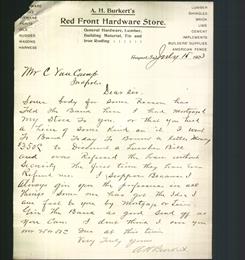 A. H. Burkert's
Red Front Hardware Store.
General Hardware, Lumber,
Building Material, Tin and
Iron Roofing
OILS
RUBBER
WAGONS
HARNESS
LUMBER
SHINGLES
BRICK
LIME
CEMENT
IMPLEMENTS
BUILDERS SUPPLIES
AMERICAN FENCE
July 15
Mr C Van Camp
Dear Sir.
Some body for Some Reason has
Told the Bank here I had Mortgaged
My Store To you or that you had
a lien of Some Kind on it. I went
To Bank Today To Borrow a little Money
$350 to Discount a Lumber Bill
and was Refused the loan without
Security the first time they have Ever
Refused me. I Suppose Because I
Always give you the preference in all
things Some one has got the Idea I
am tied to you by Mortgage or Lien.
Give the Bank as good Send off as
you Can. I dont think I owe you
Due at this time
Very Truly yours
A H Burkert